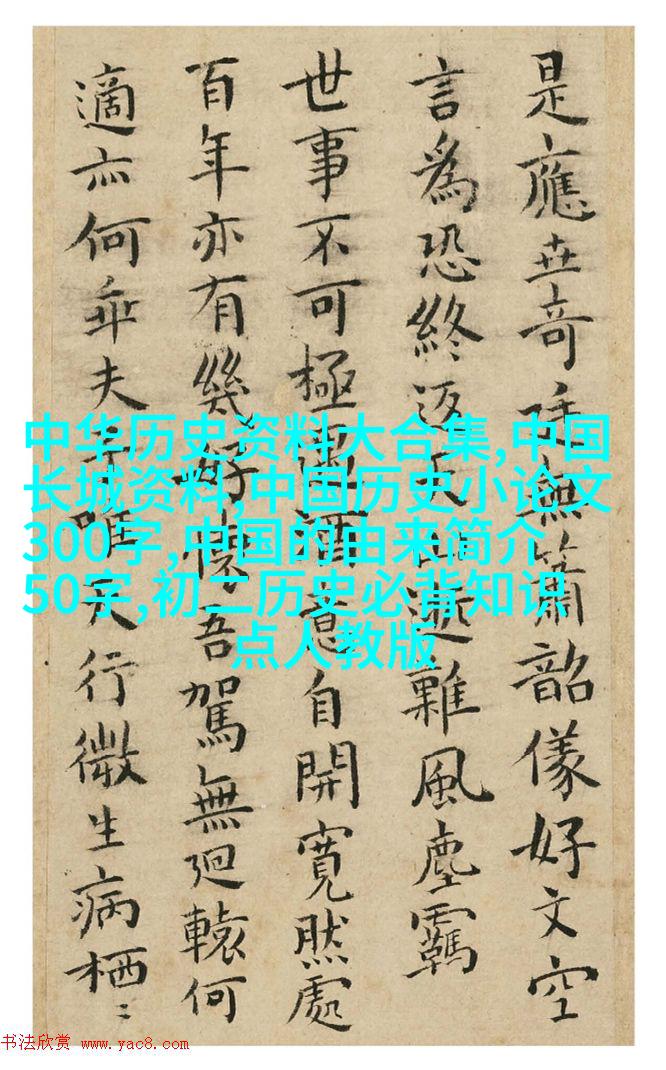 是應世奇無簫韶儀好文空
言為恐終返難風塵羈
世事不可極酒意自開寬然處
百年亦有幾好懷吾駕無迴轅何
適亦何乖夫唯天行微生病栖〻
中华历史资料大合集,中国
长城资料,中国历史小论文
300字,中国的由来简介
50字,初二历史必背知识
点人教版
书法欣赏 www.yac8.com